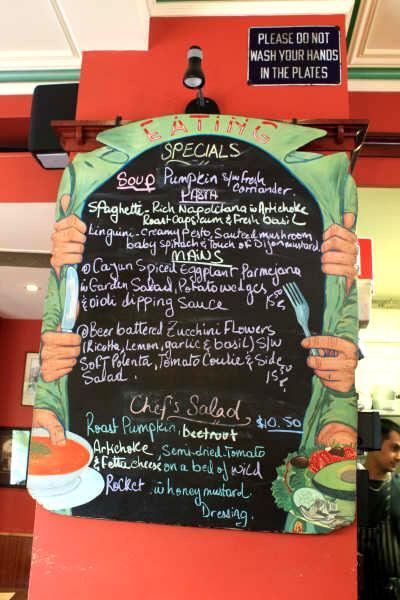 PLEASE DO NOT
WASH YOUR HANDS
IN THE PLATES
EATING
SPECIALS
Soup Pumpkin s/w Fresh
Corriander.
PASTA
Spaghetti - Rich Napolitana w Artichoke
Roast Capsicum & Fresh basil
Linguini - creamy Pesto, Sauteed mushroom
baby spinach & Touch of Dijon mustard.
MAINS
Cajun Spiced Eggplant Parmejana
w Garden Salad, Potato wedges
& aioli dipping sauce 15.50
Beer battered Zucchini Flowers
(Ricotta, Lemon, garlic & basil) s/w
Soft Polenta, Tomato Coulie & Side
Salad. 15.50
Chef's Salad
$10.50
Roast Pumpkin, beetroot
Artichoke, Semi-dried Tomato
& Fetta cheese on a bed of wild
Rocket w honey mustard
Dressing.